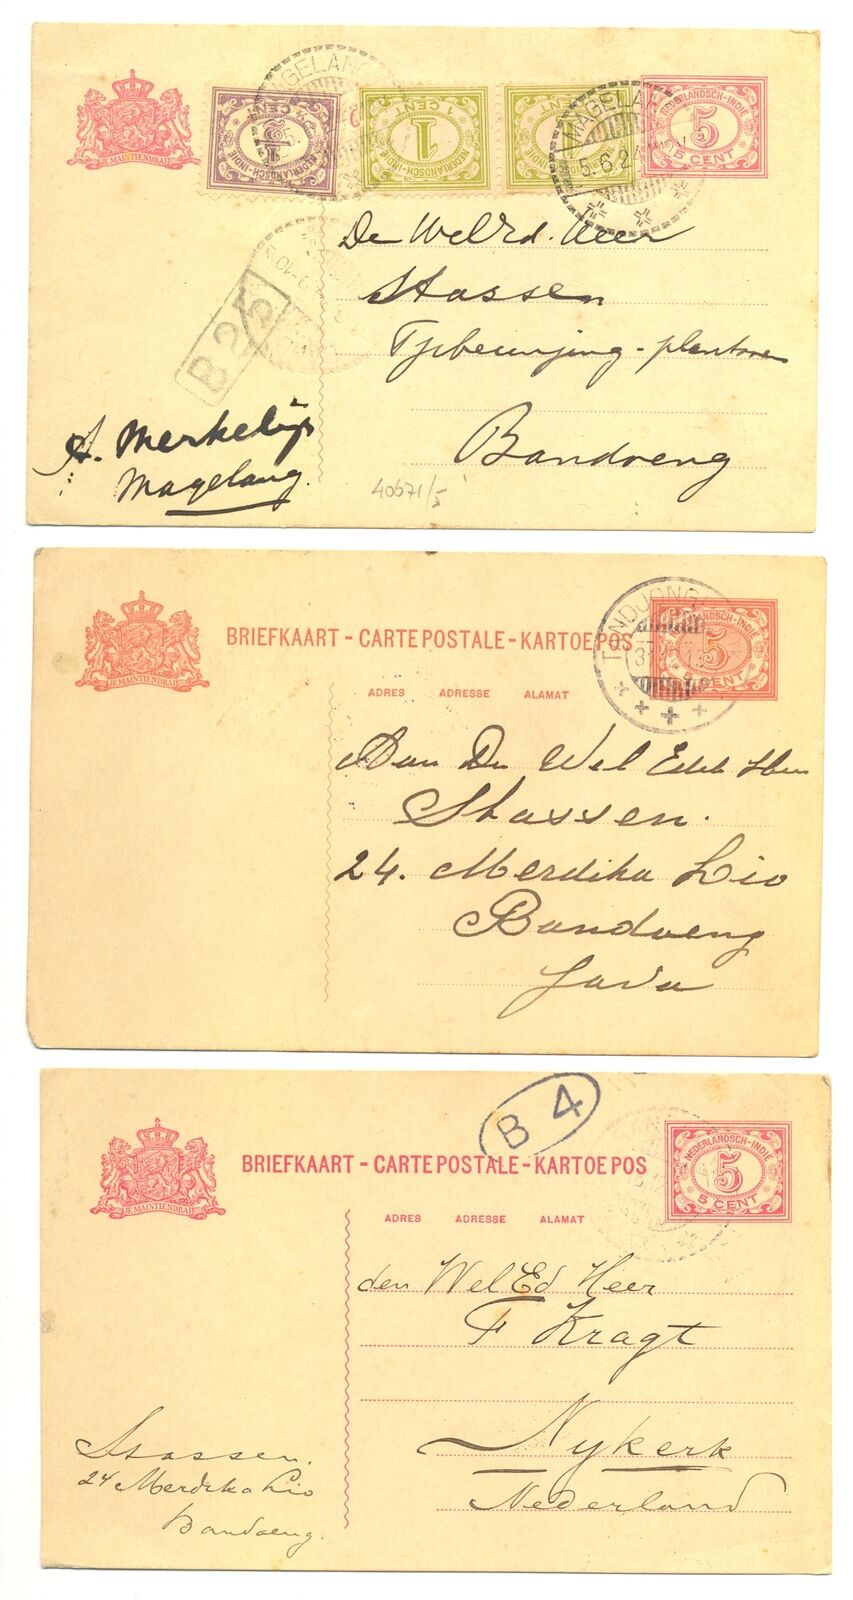 JE MAINTIENDRAI
½ CENT
NEDERLANDSCH-INDIE
1 CENT
NEDERLANDSCH-INDIE
MAGELANG
5.6.21
NEDERLANDSCH-INDIE
5
5 CENT
De WelEd. Heer
Stassen
Tjibeunjing-plantsoen
Bandoeng
B 25
A. Merkelijn
Magelang.
40671/5
JE MAINTIENDRAI
BRIEFKAART - CARTE POSTALE - KARTOEPOS
ADRES ADRESSE ALAMAT
TANDJONG
NEDERLANDSCH-INDIE
5
5 CENT
Aan Den Wel Edel Heer
Stassen.
24. Merdika Lio
Bandoeng
Java
B 4
JE MAINTIENDRAI
BRIEFKAART - CARTE POSTALE - KARTOE POS
ADRES ADRESSE ALAMAT
NEDERLANDSCH-INDIE
5
5 CENT
den WelEd Heer
F Kragt
Nykerk
Nederland
Stassen.
24 Merdika Lio
Bandoeng.